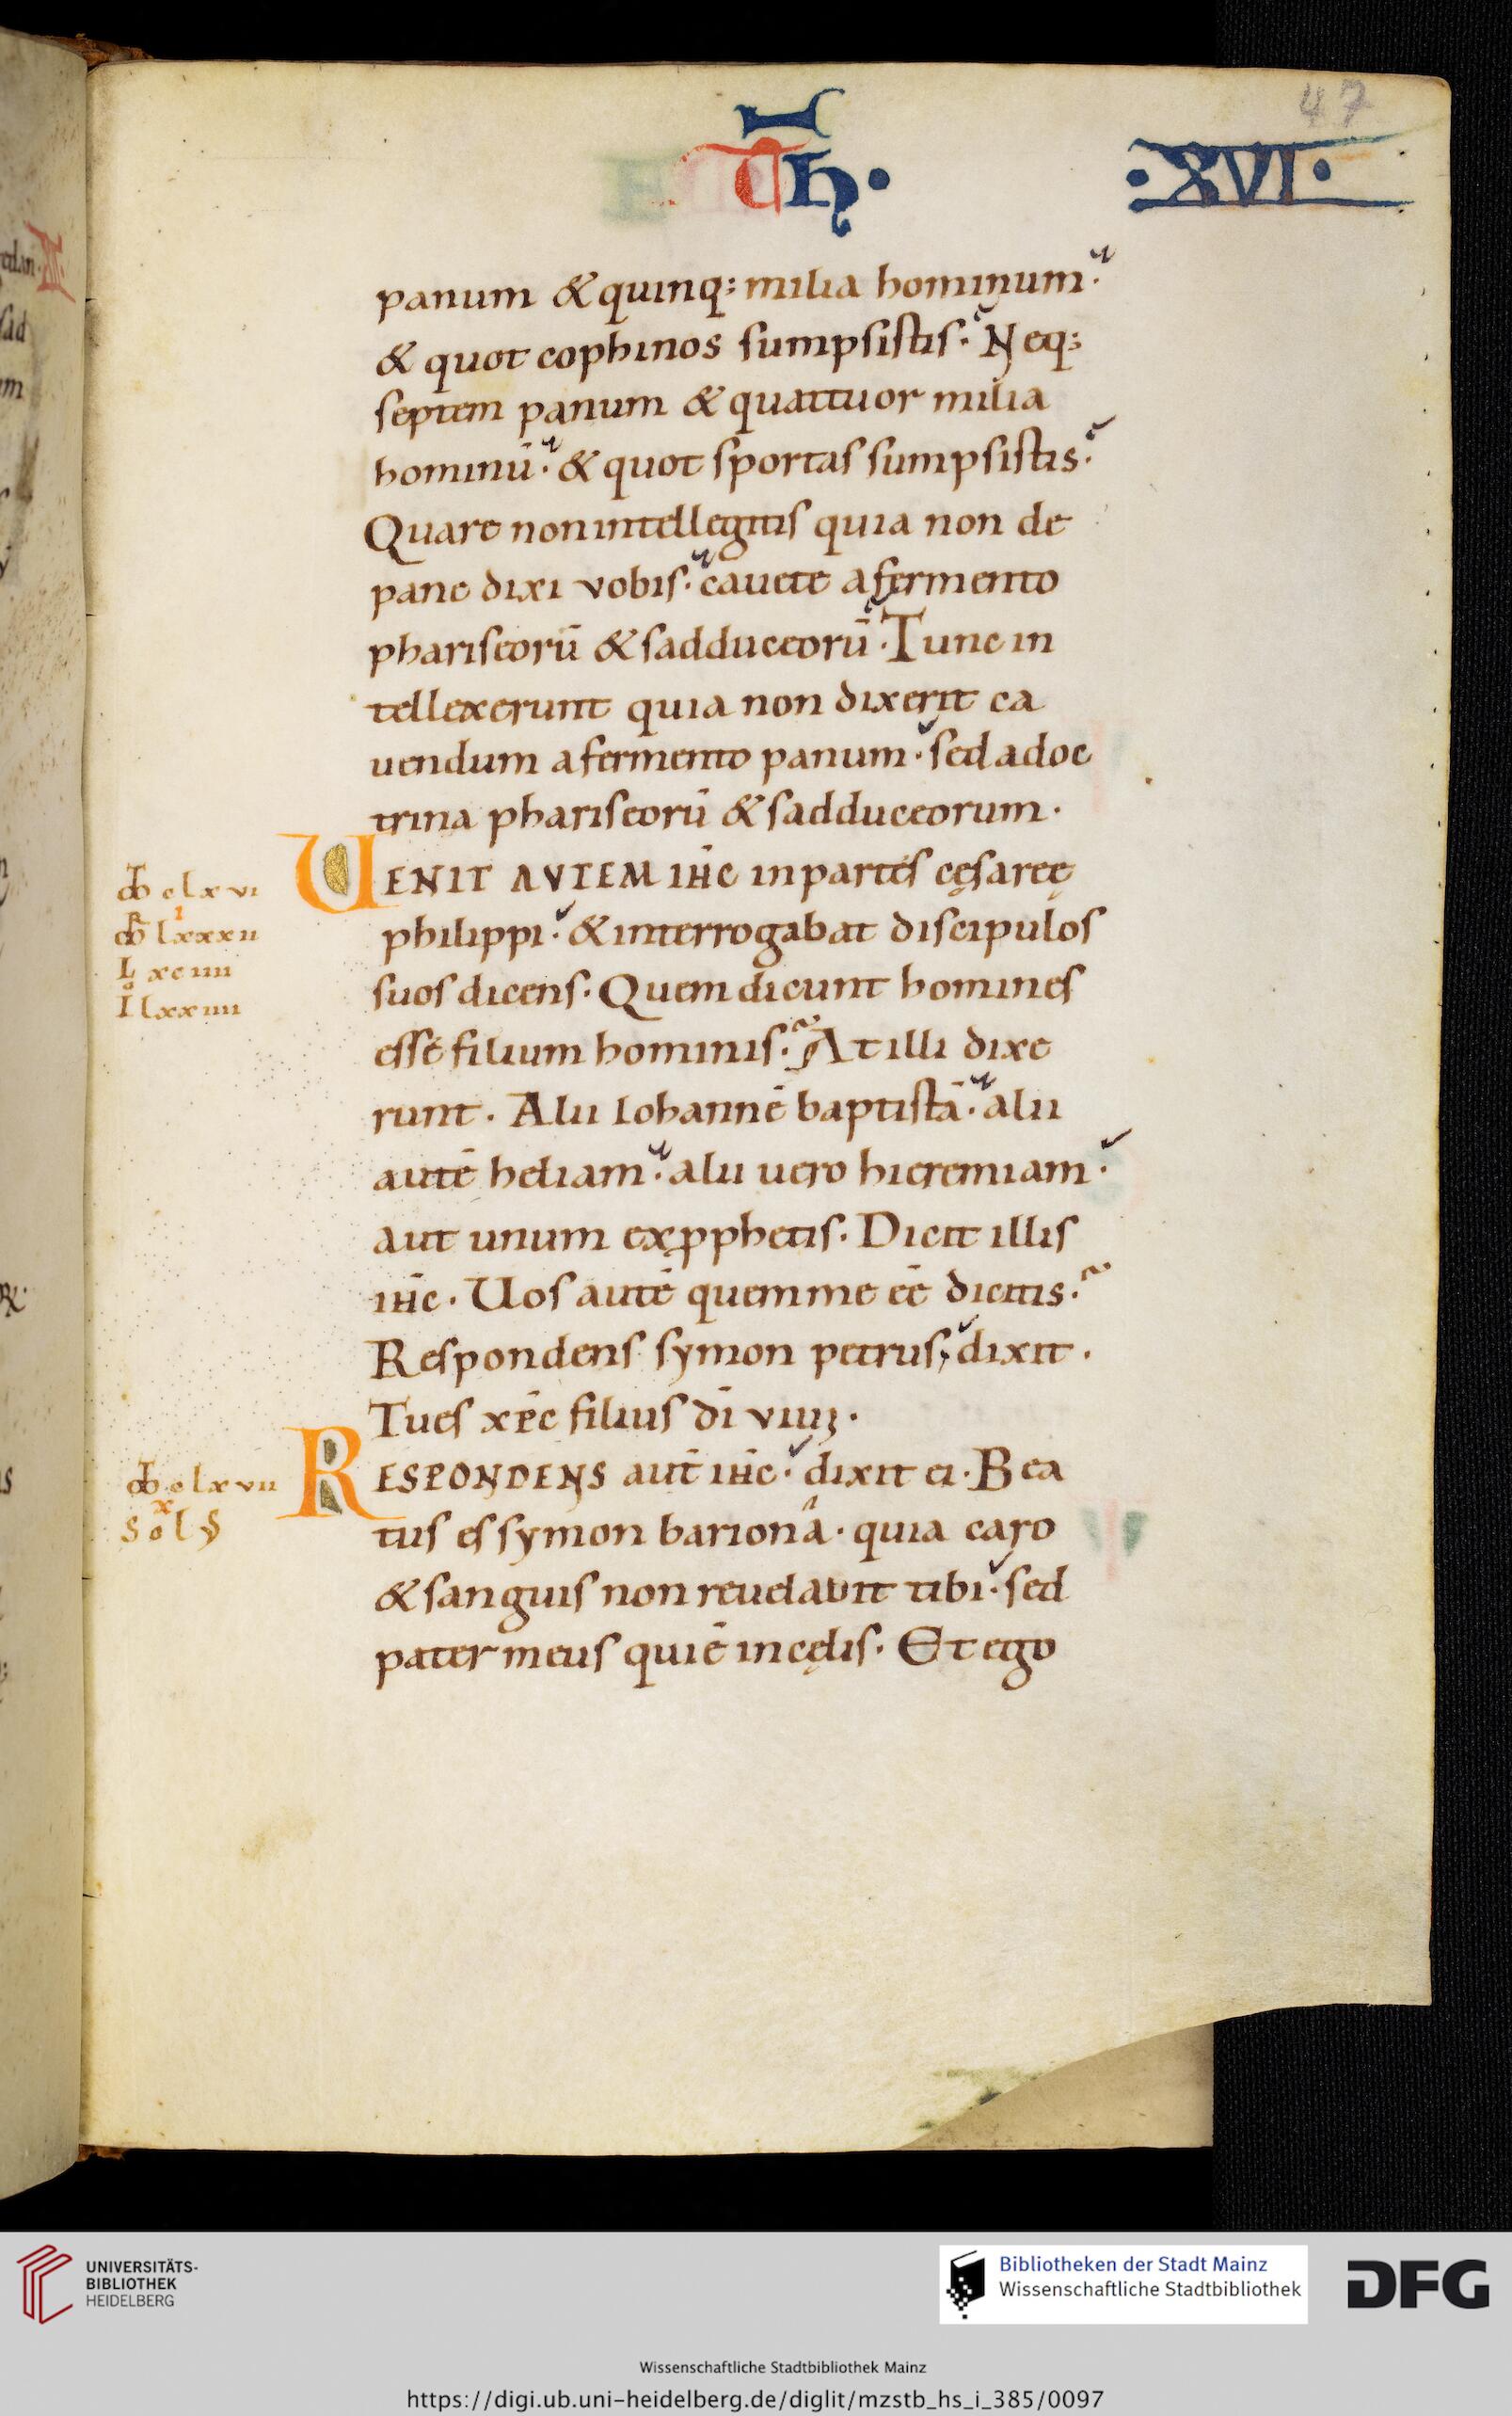 47
Th·
·XVI·
panum & quinq; milia hominum.
& quot cophinos sumpsistis. Neq;
septem panum & quattuor milia
hominū. & quot sportas sumpsistis.
Quare non intellegitis quia non de
pane dixi vobis. cauete a fermento
phariseorū & sadduceorū. Tunc in
tellexerunt quia non dixerit ca
uendum a fermento panum. sed a doc
trina phariseorū & sadduceorum.
UENIT AVTEM ih̄c in partes cęsareę
philippi. & interrogabat discipulos
suos dicens. Quem dicunt homines
esse filium hominis. At illi dixe
runt. Alii Iohannē baptistā. alii
autē heliam. alii uero hieremiam.
aut unum ex ꝓphetis. Dicit illis
ih̄c. Uos autē quem me eē dicitis.
Respondens symon petrus, dixit.
Tu es xp̄c filius dī viui.
RESPONDENS aut̄ ih̄c. dixit ei. Bea
tus es symon bariona. quia caro
& sanguis non reuelauit tibi. sed
pater meus qui ē in cęlis. Et ego
clxvi
lxxxii
L xciiii
I lxxiiii
clxvii
UNIVERSITÄTS-
BIBLIOTHEK
HEIDELBERG
Bibliotheken der Stadt Mainz
Wissenschaftliche Stadtbibliothek
DFG
Wissenschaftliche Stadtbibliothek Mainz
https://digi.ub.uni-heidelberg.de/diglit/mzstb_hs_i_385/0097